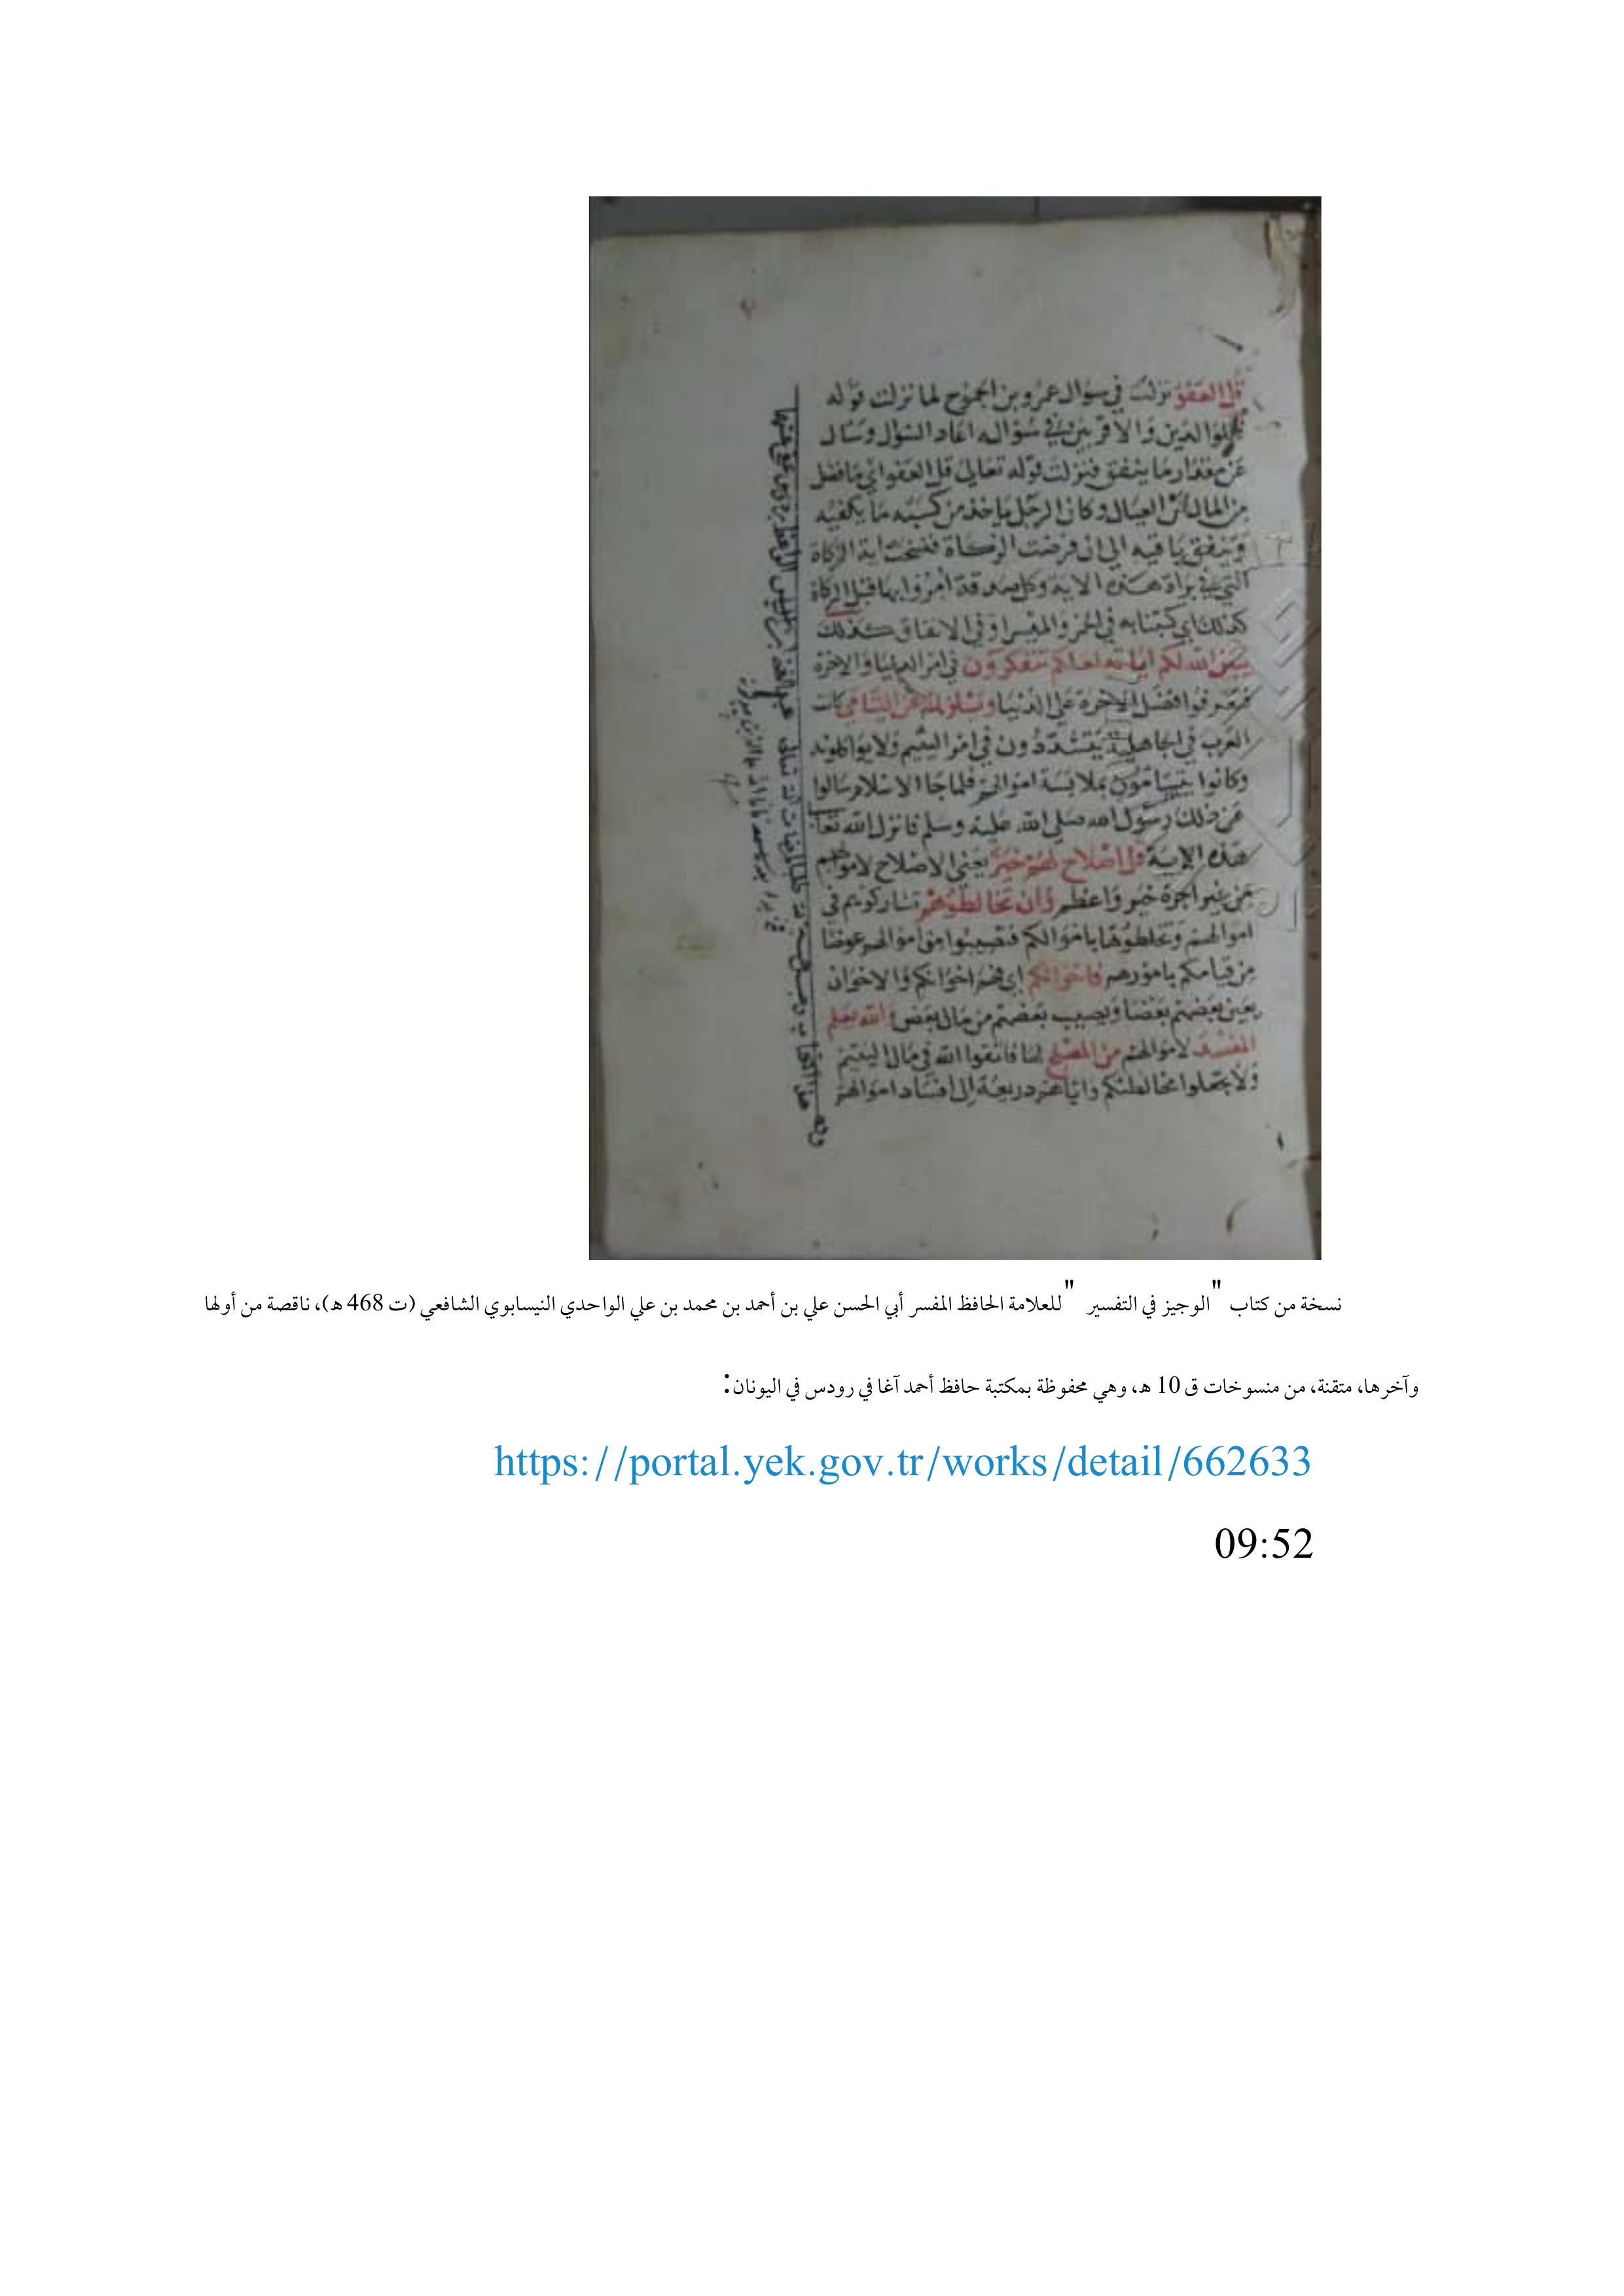 قل العفو نزلت في سؤال عمرو بن الجموح لما نزلت قوله
فللوالدين والاقربين في سؤاله اعاد السؤال وسال
عن مقدار ما ينفق فنزلت قوله تعالى قل العفو اي ما فضل
من المال عن العيال وكان الرجل ياخذ من كسبه ما يكفيه
وينفق باقيه الى ان فرضت الزكاة فنسخت اية الزكاة
التي في براة هذه الاية وكل صدقة امروا بها قبل الزكاة
كذلك اي كبيانه في الخمر والميسر او في الانفاق كذلك
يبين الله لكم ايات لعلكم تتفكرون في امر الدنيا والاخرة
فتعرفوا فضل الاخرة على الدنيا ويسئلونك عن اليتامى كانت
العرب في الجاهلية يتشددون في امر اليتيم ولا يواكلونه
وكانوا يتشامون بملابسة اموالهم فلما جا الاسلام سالوا
عن ذلك رسول الله صلى الله عليه وسلم فانزل الله تعا
هذه الاية قل اصلاح لهم خير يعني الاصلاح لاموالهم
من غير اجرة خير واعظم وان تخالطوهم تشاركوهم في
اموالهم وتخلطوها باموالكم فتصيبوا من اموالهم عوضا
من قيامكم بامورهم فاخوانكم اي فهم اخوانكم والاخوان
يعين بعضهم بعضا ويصيب بعضهم من مال بعض والله يعلم
المفسد لاموالهم من المصلح لها فاتقوا الله في مال اليتيم
ولا تجعلوا مخالطتكم واياهم ذريعة الى افساد اموالهم
نسخة من كتاب "الوجيز في التفسير" للعلامة الحافظ المفسر أبي الحسن علي بن أحمد بن محمد بن علي الواحدي النيسابوي الشافعي (ت 468 هـ)، ناقصة من أولها
وآخرها، متقنة، من منسوخات ق 10 هـ، وهي محفوظة بمكتبة حافظ أحمد آغا في رودس في اليونان:
https://portal.yek.gov.tr/works/detail/662633
09:52